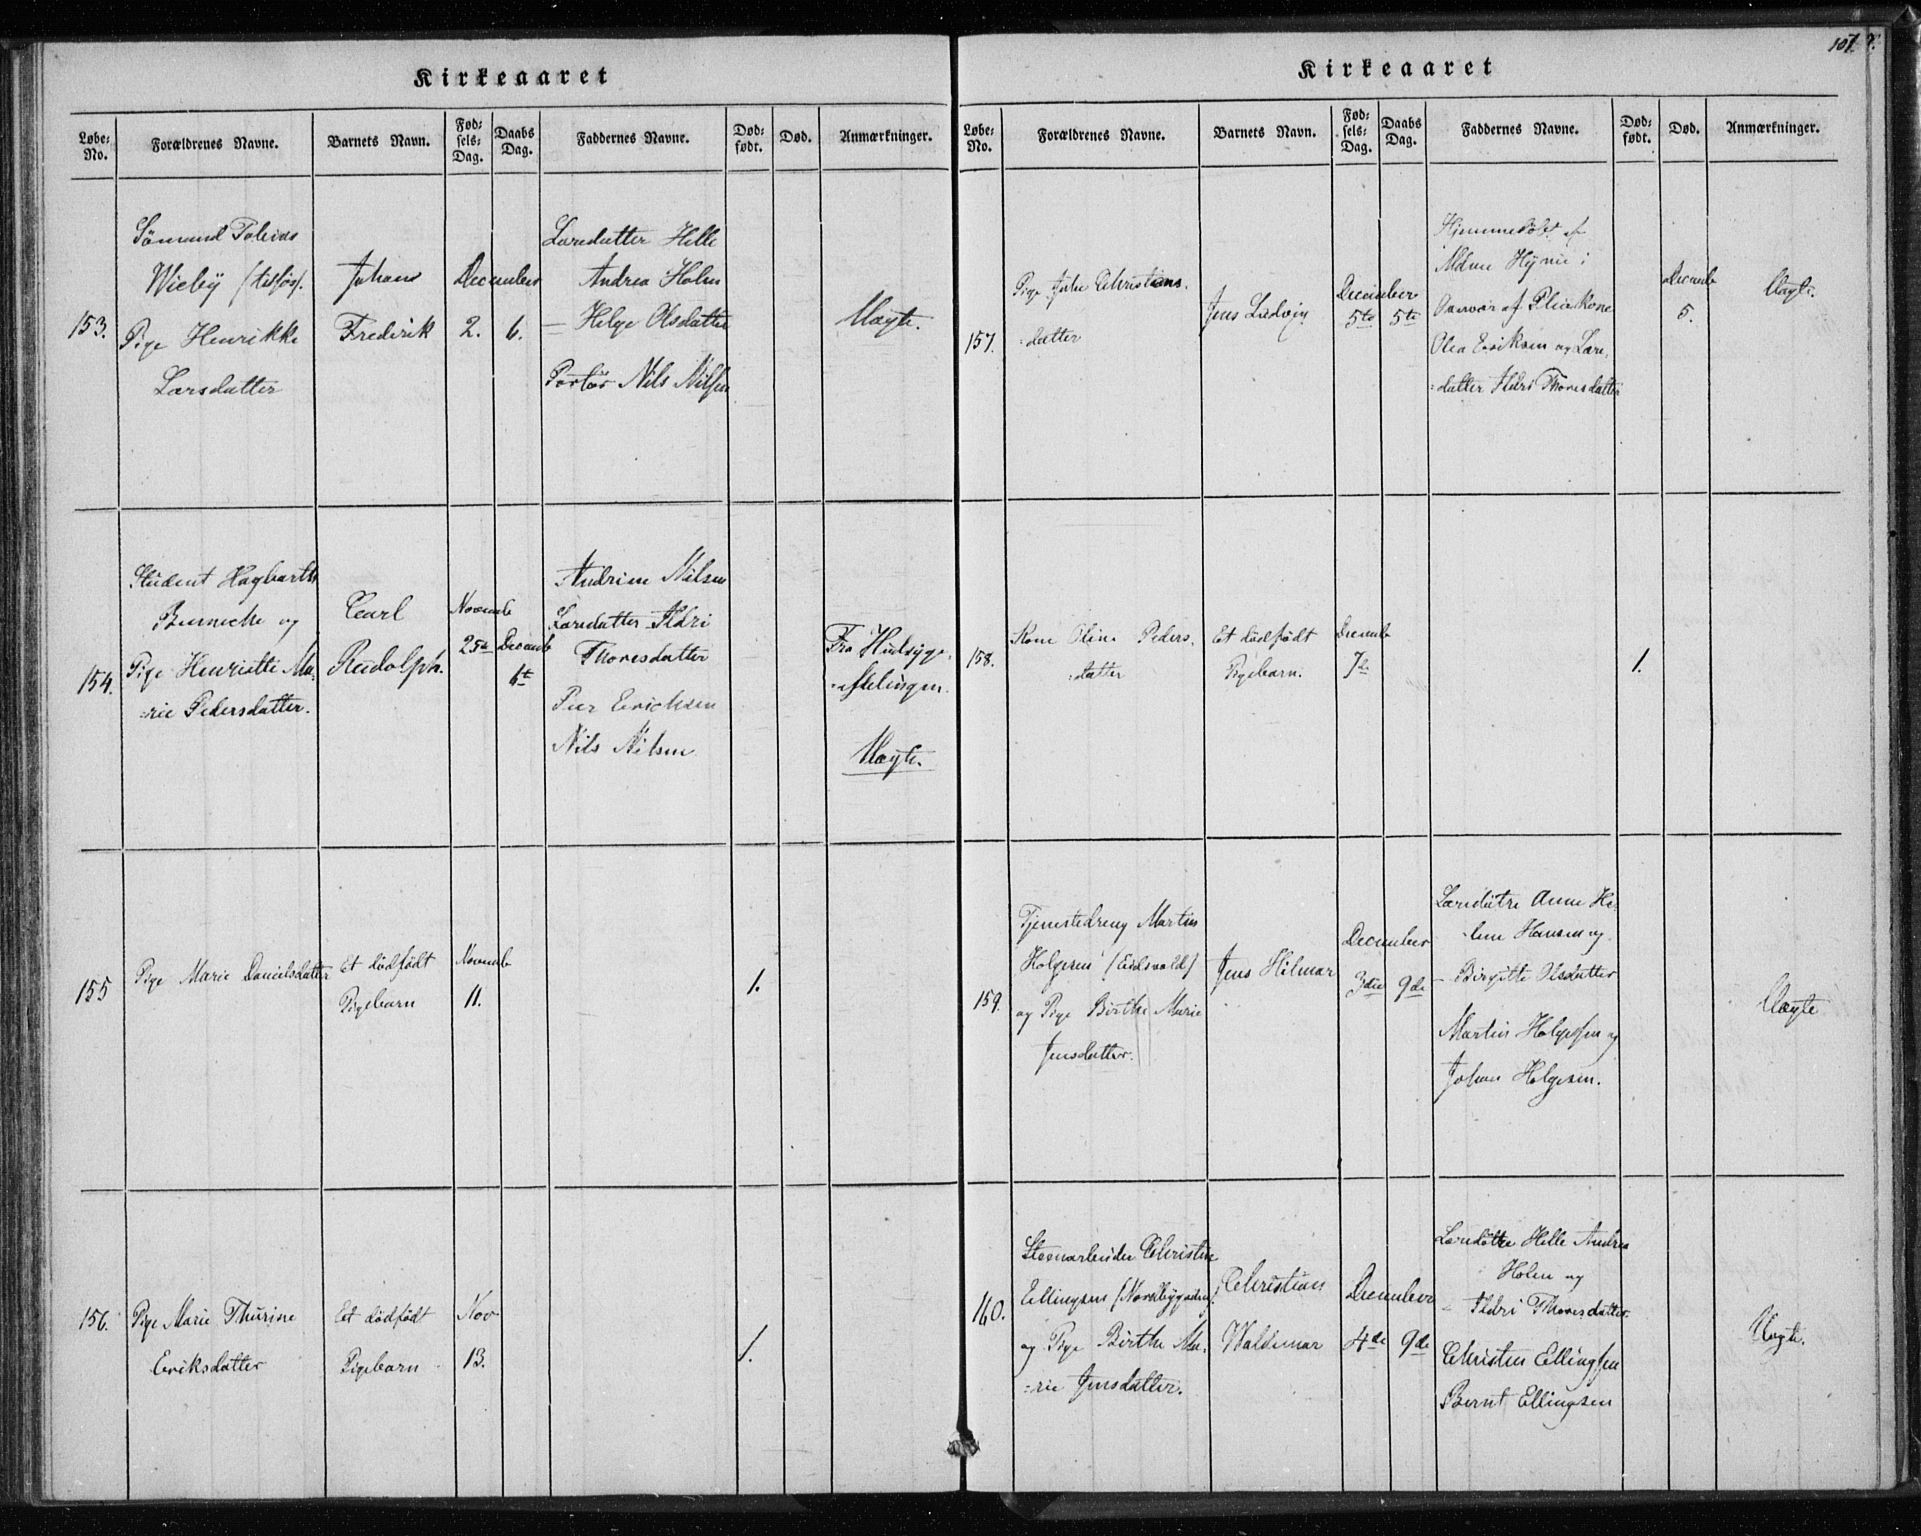 107.
Kirkeaaret
Løbe-No.
Forældrenes Navne.
Barnets Navn.
Fødsels-Dag.
Daabs Dag.
Faddernes Navne.
Dødfødt.
Død.
Anmærkninger.
153.
Sömund Tobias
Wieby
Pige Henrikke
Larsdatter
Johan
Frederik
December
2.
6.
Læredatter Helle
Andrea Holm
— Helge Olsdatter
Portør Nils Nilsen
Uægte.
154.
Student Hagbarth
og
Pige Henriette Ma-
rie Pedersdatter.
Carl
Rudolph.
Novemb
25de
Decemb
6te
Andrine Nilsen
Læredatter Ildri
Thoresdatter
Peer Erichsen
Nils Nilsen
Fra Hudsyge-
afdelingen.
Uægte.
155
Pige Marie Danielsdatter
Et dödfödt
Pigebarn
Novemb
11.
1.
156.
Pige Marie Thurine
Eriksdatter
Et dödfödt
Pigebarn
Nov
13.
1.
Kirkeaaret
Løbe-No.
Forældrenes Navne.
Barnets Navn.
Fødsels-Dag.
Daabs Dag.
Faddernes Navne.
Dødfødt.
Død.
Anmærkninger.
157.
Pige Julie Christians-
datter
Jens Ludvig
December
5te
5te
Hjemmedöbt af
i
Overvær af Pleiekone
Olea Eriksen og Lære-
datter Ildri Thoresdatter
Decemb
5.
Uægte.
158.
Kone Oline Peders-
datter
Et dödfödt
Pigebarn.
Decemb
7de
1.
159.
Tjenestedreng Martin
Holgersen (Eidsvold)
og Pige Birthe Marie
Jensdatter.
Jens Hilmar
December
3die
9de
Læredötre Anne He-
lene Hansen og
— Birgitte Olsdatter
Martin Holgersen og
Johan Holgersen.
Uægte
160.
Christen
Ellingsen
og Pige Birthe Ma-
rie Jensdatter.
Christian
Waldemar
December
4de
9de
Læredöttre Helle Andrea
Holm og
— Ildri Thoresdatter
Christen Ellingsen
Bernt Ellingsen
Uægte.